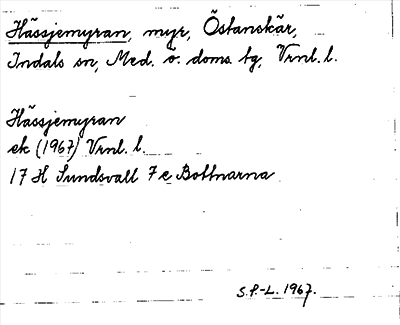 Hässjemyran, myr, Östanskär,
Indals sn, Med. ö. doms. tg, Vrnl. l.
Hässjemyran
ek (1967) Vrnl. l.
17 H Sundsvall 7 e Bottnarna
S.P.-L. 1967.